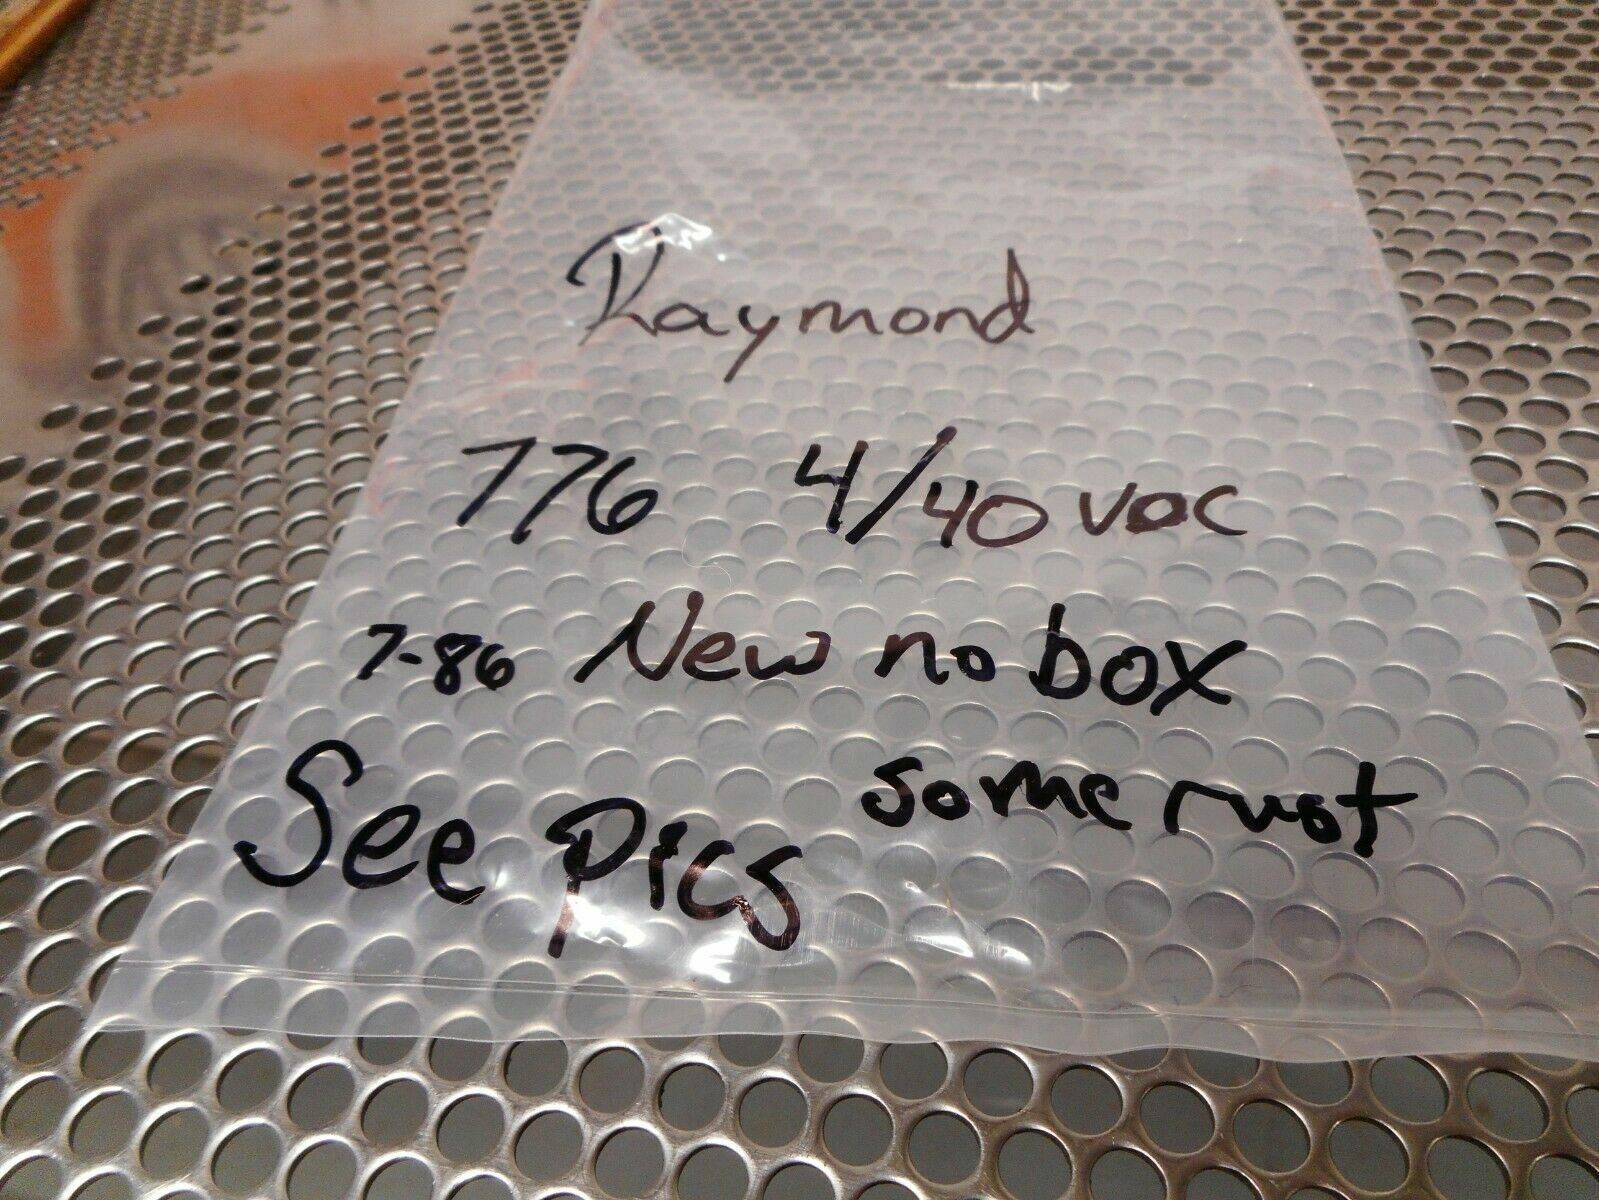 Raymond
776 4/40 VDC
7-86 New no box
See pics some rust